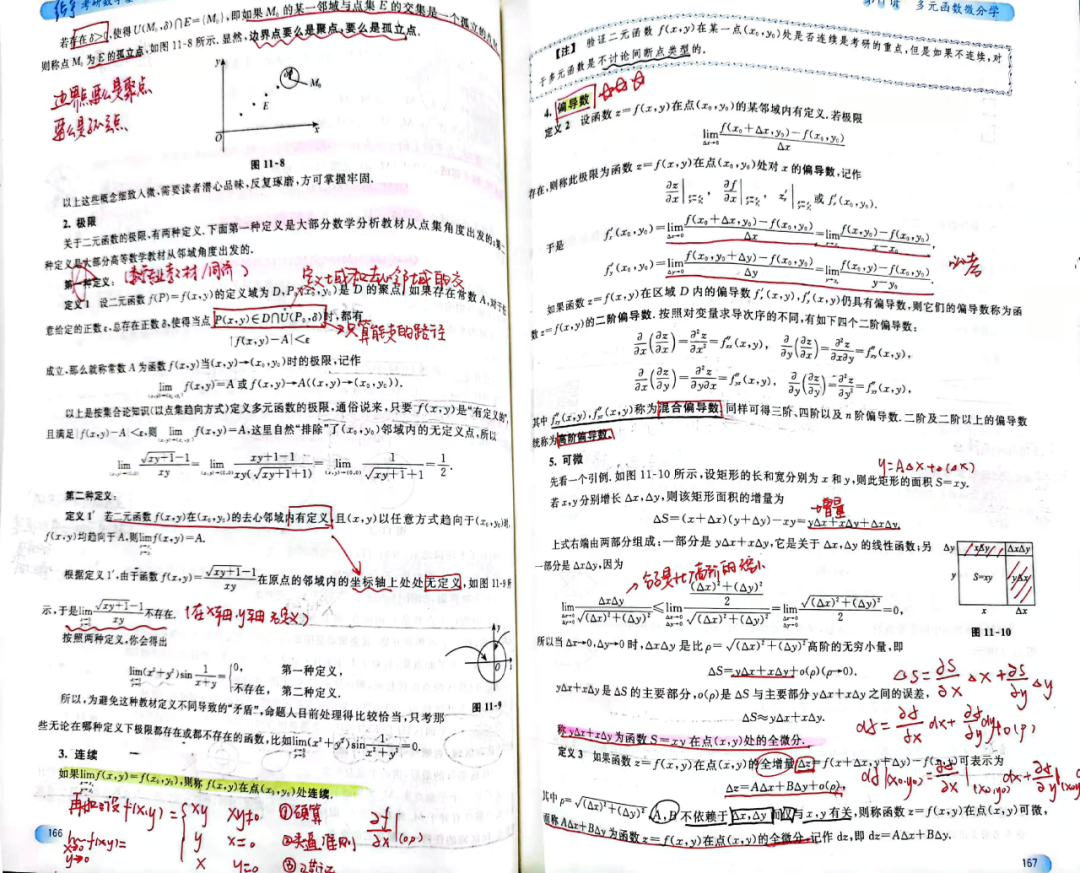 若存在δ>0,使得U(M₀,δ)∩E={M₀},即如果M₀的某一邻域与点集E的交集是一个孤立的点M₀
则称点M₀为E的孤立点,如图11-8所示.显然,边界点要么是聚点,要么是孤立点.
边界点要么是聚点
要么是孤立点
y
M₀
E
O
x
图11-8
以上这些概念细致入微,需要读者潜心品味,反复琢磨,方可掌握牢固.
2. 极限
关于二元函数的极限,有两种定义.下面第一种定义是大部分数学分析教材从点集角度出发的,第二
种定义是大部分高等数学教材从邻域角度出发的.
第一种定义:
定义域和去心邻域的交
定义1 设二元函数f(P)=f(x,y)的定义域为D,P₀(x₀,y₀)是D的聚点.如果存在常数A,对于任
意给定的正数ε,总存在正数δ,使得当点P(x,y)∈D∩Ů(P₀,δ)时,都有
|f(x,y)-A|<ε
只算能走的路径
成立,那么就称常数A为函数f(x,y)当(x,y)→(x₀,y₀)时的极限,记作
lim f(x,y)=A或f(x,y)→A((x,y)→(x₀,y₀)).
以上是按集合论知识(以点集趋向方式)定义多元函数的极限,通俗说来,只要f(x,y)是“有定义的”,
且满足|f(x,y)-A|<ε,则 lim f(x,y)=A,这里自然“排除”了(x₀,y₀)邻域内的无定义点,所以
lim (√(xy+1)-1)/(xy) = lim (xy+1-1)/(xy(√(xy+1)+1)) = lim 1/(√(xy+1)+1) = 1/2.
第二种定义:
定义1′ 若二元函数f(x,y)在(x₀,y₀)的去心邻域内有定义,且(x,y)以任意方式趋向于(x₀,y₀)时,
f(x,y)均趋向于A,则lim f(x,y)=A.
根据定义1′,由于函数f(x,y)=(√(xy+1)-1)/(xy)在原点的邻域内的坐标轴上处处无定义,如图11-9所
示,于是lim (√(xy+1)-1)/(xy)不存在.(在x轴、y轴无定义)
按照两种定义,你会得出
lim(x²+y²)sin 1/(x+y) = {0, 第一种定义,
不存在, 第二种定义.
y
O
x
图11-9
所以,为避免这种教材定义不同导致的“矛盾”,命题人目前处理得比较恰当,只考那
些无论在哪种定义下极限都存在或都不存在的函数,比如lim(x²+y²)sin 1/(x²+y²)=0.
3. 连续
如果lim f(x,y)=f(x₀,y₀),则称f(x,y)在点(x₀,y₀)处连续.
f(x,y)={xy xy≠0
y x=0
x y=0
166
第11讲 多元函数微分学
【注】 验证二元函数f(x,y)在某一点(x₀,y₀)处是否连续是考研的重点,但是如果不连续,对
于多元函数是不讨论间断点类型的.
4. 偏导数 ☆☆☆
定义2 设函数z=f(x,y)在点(x₀,y₀)的某邻域内有定义.若极限
lim Δx→0 (f(x₀+Δx,y₀)-f(x₀,y₀))/Δx
存在,则称此极限为函数z=f(x,y)在点(x₀,y₀)处对x的偏导数,记作
∂z/∂x|, ∂f/∂x|, z′ₓ| 或f′ₓ(x₀,y₀).
于是 f′ₓ(x₀,y₀)=lim Δx→0 (f(x₀+Δx,y₀)-f(x₀,y₀))/Δx=lim (f(x,y₀)-f(x₀,y₀))/(x-x₀),
f′ᵧ(x₀,y₀)=lim Δy→0 (f(x₀,y₀+Δy)-f(x₀,y₀))/Δy=lim (f(x₀,y)-f(x₀,y₀))/(y-y₀).
必考
如果函数z=f(x,y)在区域D内的偏导数f′ₓ(x,y),f′ᵧ(x,y)仍具有偏导数,则它们的偏导数称为函
数z=f(x,y)的二阶偏导数.按照对变量求导次序的不同,有如下四个二阶偏导数:
∂/∂x(∂z/∂x)=∂²z/∂x²=f″ₓₓ(x,y), ∂/∂y(∂z/∂x)=∂²z/∂x∂y=f″ₓᵧ(x,y),
∂/∂x(∂z/∂y)=∂²z/∂y∂x=f″ᵧₓ(x,y), ∂/∂y(∂z/∂y)=∂²z/∂y²=f″ᵧᵧ(x,y),
其中f″ₓᵧ(x,y),f″ᵧₓ(x,y)称为混合偏导数.同样可得三阶、四阶以及n阶偏导数.二阶及二阶以上的偏导数
统称为高阶偏导数.
5. 可微
y=AΔx+o(Δx)
先看一个引例.如图11-10所示,设矩形的长和宽分别为x和y,则此矩形的面积S=xy.
若x,y分别增长Δx,Δy,则该矩形面积的增量为
增量
ΔS=(x+Δx)(y+Δy)-xy=yΔx+xΔy+ΔxΔy.
上式右端由两部分组成:一部分是yΔx+xΔy,它是关于Δx,Δy的线性函数;另
一部分是ΔxΔy,因为
Δy xΔy ΔxΔy
y S=xy yΔx
x Δx
图11-10
lim ΔxΔy/√((Δx)²+(Δy)²) ≤ lim (((Δx)²+(Δy)²)/2)/√((Δx)²+(Δy)²) = lim √((Δx)²+(Δy)²)/2=0,
所以当Δx→0,Δy→0时,ΔxΔy是比ρ=√((Δx)²+(Δy)²)高阶的无穷小量,即
ΔS=yΔx+xΔy+o(ρ)(ρ→0).
ΔS=∂S/∂x Δx+∂S/∂y Δy
yΔx+xΔy是ΔS的主要部分,o(ρ)是ΔS与主要部分yΔx+xΔy之间的误差,
ΔS≈yΔx+xΔy.
称yΔx+xΔy为函数S=xy在点(x,y)处的全微分.
定义3 如果函数z=f(x,y)在点(x,y)的全增量Δz=f(x+Δx,y+Δy)-f(x,y)可表示为
Δz=AΔx+BΔy+o(ρ),
其中ρ=√((Δx)²+(Δy)²),A,B不依赖于Δx,Δy而仅与x,y有关,则称函数z=f(x,y)在点(x,y)可微,
而称AΔx+BΔy为函数z=f(x,y)在点(x,y)的全微分,记作dz,即dz=AΔx+BΔy.
167